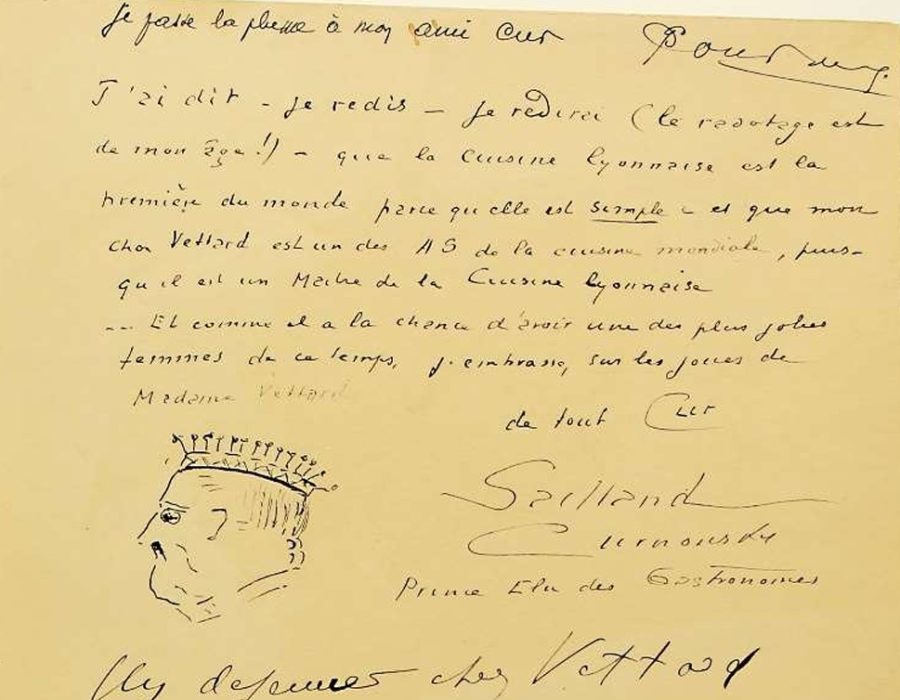 Je passe la plume à mon ami Cur
J'ai dit - je redis - je redirai (le radotage est
de mon âge !) - que la cuisine lyonnaise est la
première du monde parce qu'elle est simple - et que mon
cher Vettard est un des AS de la cuisine mondiale, puis-
qu'il est un Maître de la Cuisine lyonnaise
... Et comme il a la chance d'avoir une des plus jolies
femmes de ce temps, j'embrasse, sur les joues de
Madame Vettard
de tout Cur
Sailland
Curnonsky
Prince Elu des Gastronomes
déjeuner chez Vettard